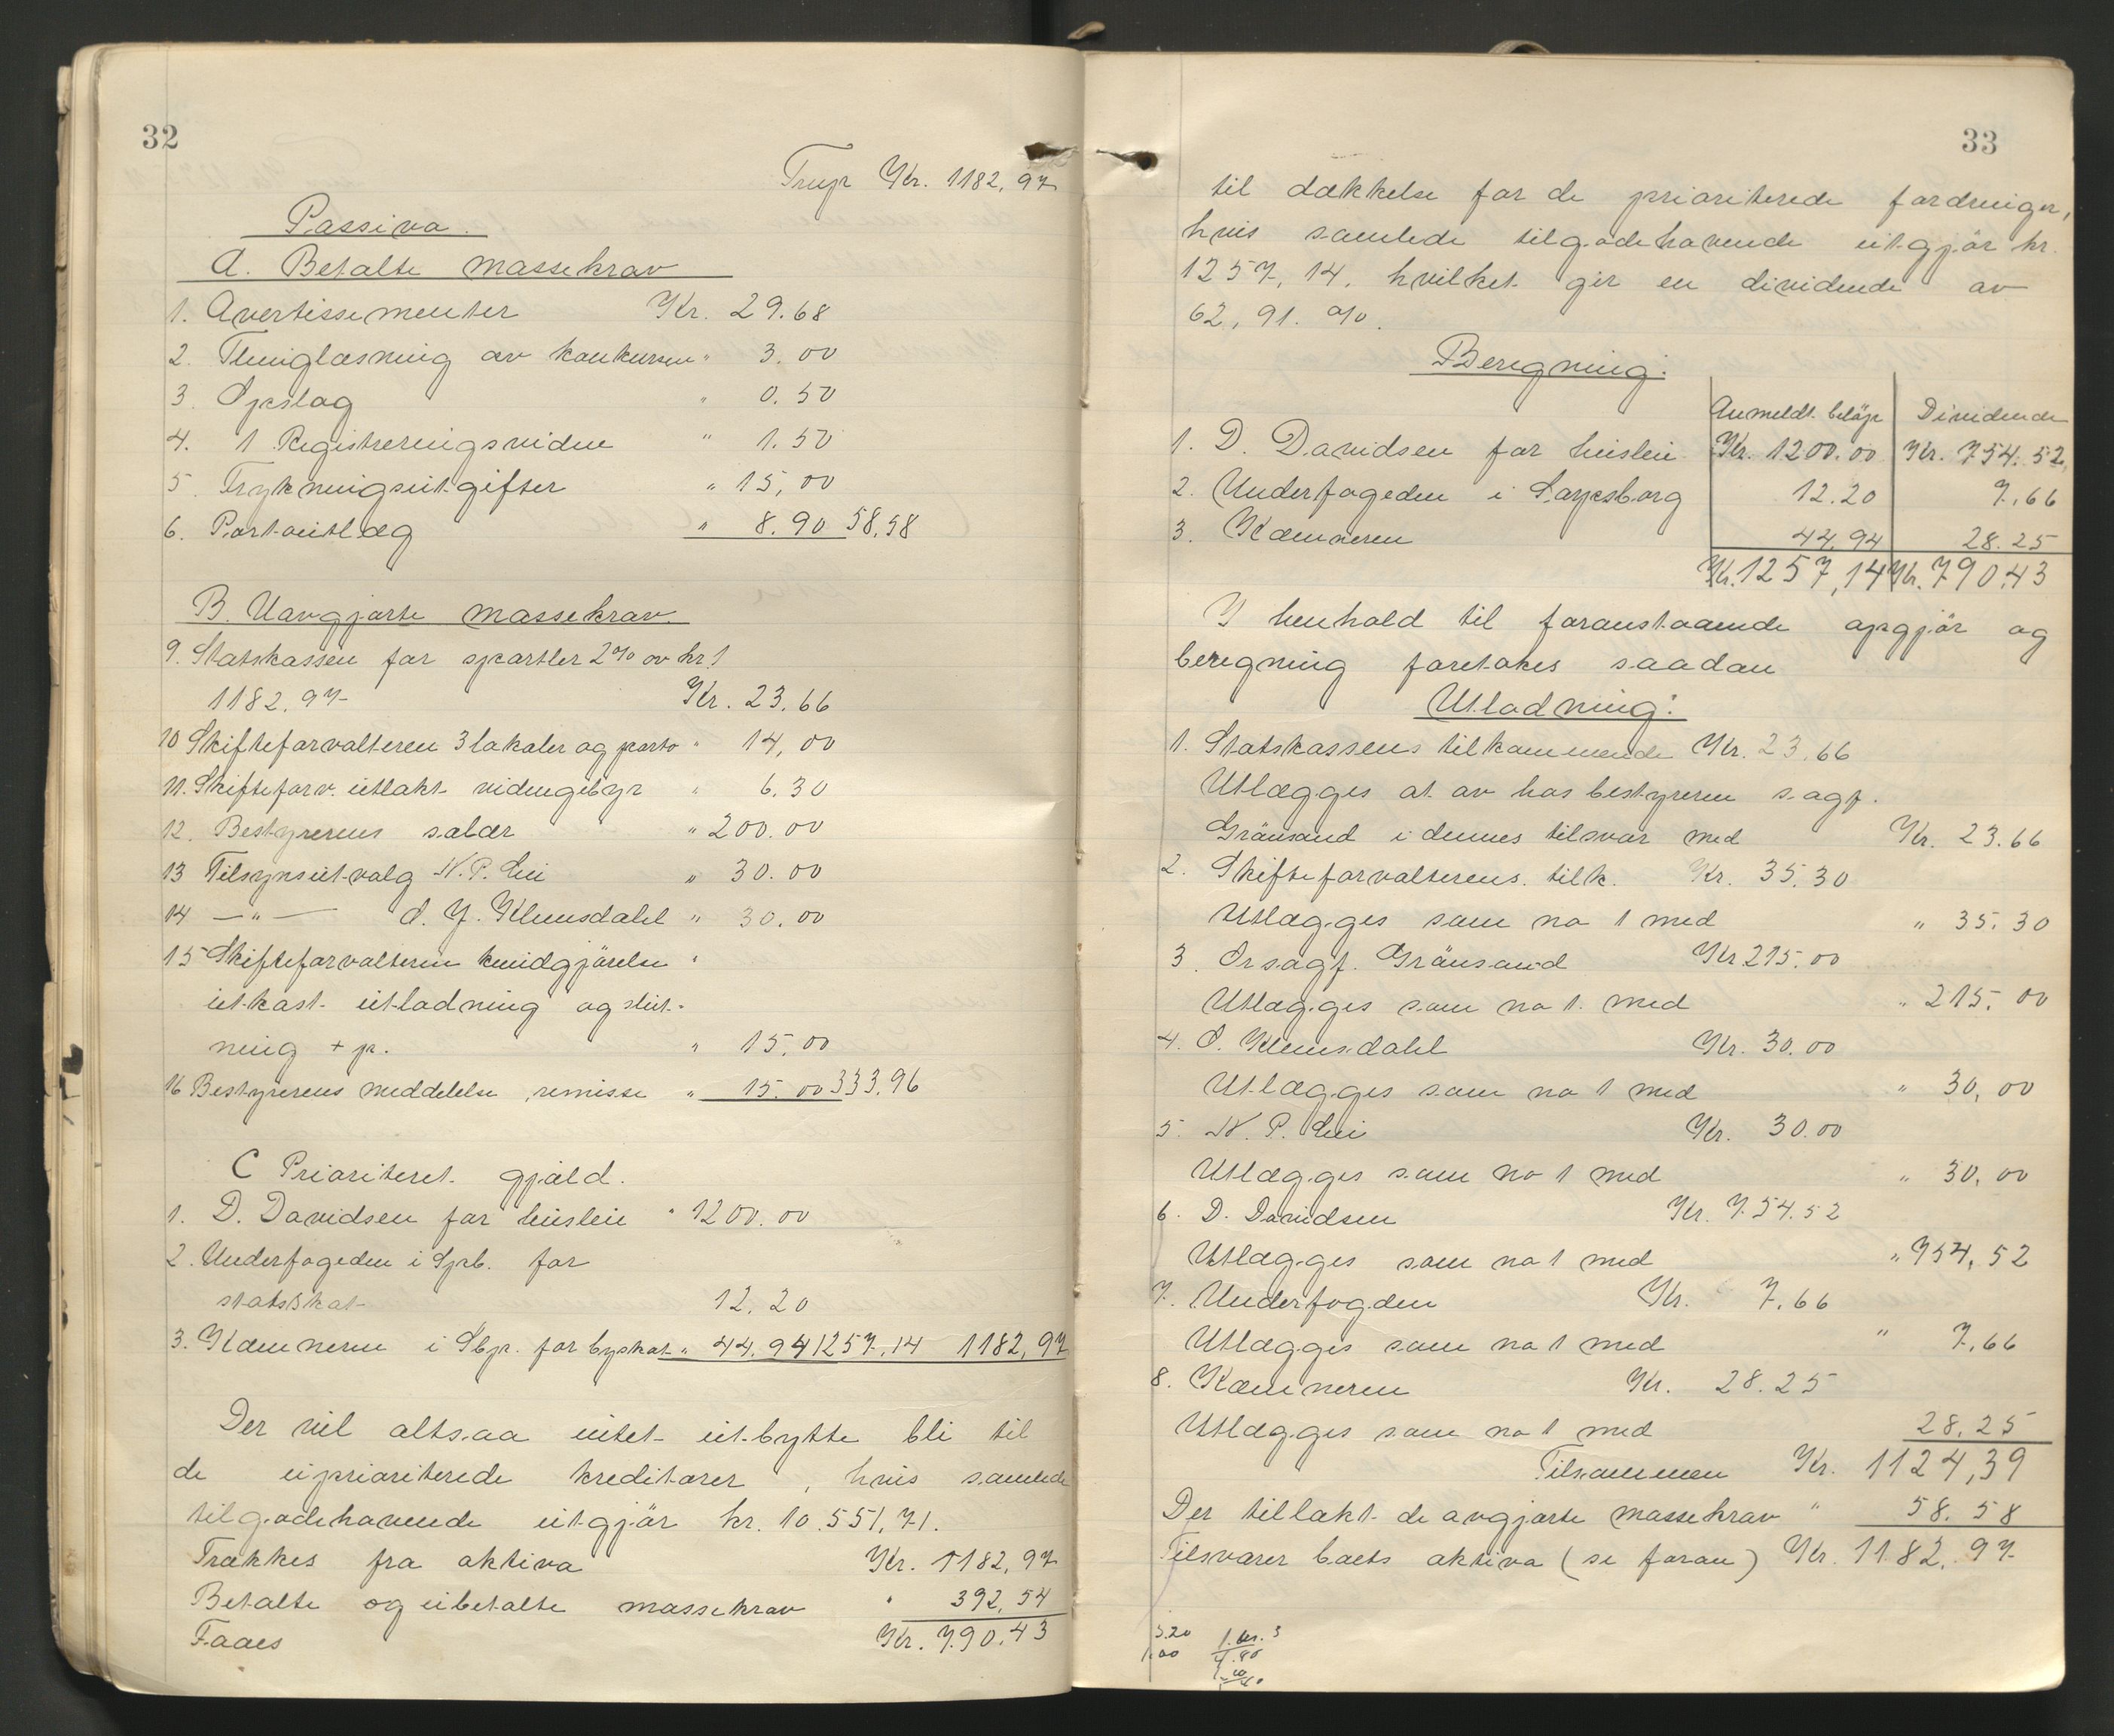 32
Trupr Kr. 1182,97
Passiva.
A. Betalte massekrav
1. Avertissementer Kr. 29.68
2. Thinglæsning av konkursen " 3.00
3. Opslag " 0.50
4. 1 Registreringsviden " 1.50
5. Trykningsutgifter " 15,00
6. Portoutlæg " 8.90 58,58
B. Uavgjorte massekrav.
9. Statskassen for sportler 2% av kr.
1182.97 Kr. 23.66
10 Skifteforvalteren 3 lokaler og porto " 14,00
11. Skifteforv. utlakt videngebyr " 6.30
12. Bestyrerens salær " 200.00
13 Tilsynsutvalg N.P. Lie " 30.00
14 — " — O. J. Klemsdahl " 30.00
15 Skifteforvalteren kundgjørelse "
utkast utlodning og slut-
ning + p. " 15.00
16 Bestyrerens meddelelse, remisse " 15.00 333,96
C Prioriteret gjæld.
1. D. Davidsen for husleie " 1200.00
2. Underfogeden i Sprb. for
statsskat 12.20
3. Kæmneren i Sbpr. for byskat " 44.94 1257,14 1182,97
Der vil altsaa intet utbytte bli til
de uprioriterede kreditorer, hvis samlede
tilgodehavende utgjør kr. 10.551,71.
Trækkes fra aktiva Kr. 1182,97
Betalte og ubetalte massekrav " 392,54
Faaes Kr. 790.43
33
til dækkelse for de prioriterede fordringer,
hvis samlede tilgodehavende utgjør kr.
1257,14, hvilket gir en dividende av
62,91. %.
Beregning:
Anmeldt beløp Dividende
1. D. Davidsen for husleie Kr. 1200.00 Kr. 754.52
2. Underfogeden i Sarpsborg 12.20 7.66
3. Kæmneren 44.94 28.25
Kr. 1257,14 Kr. 790.43
I henhold til foranstaaende opgjør og
beregning foretakes saadan
Utlodning:
1. Statskassens tilkommende Kr. 23.66
Utlægges at av hos bestyreren sagf.
Grånsand i dennes tilsvar med Kr. 23.66
2. Skifteforvalterens tilk. Kr. 35.30
Utlægges som no 1 med " 35.30
3. Orsagf. Grånsand Kr 215.00
Utlægges som no 1. med " 215.00
4. O. Klemsdahl Kr. 30.00
Utlægges som no 1 med " 30,00
5. N. P. Lie Kr. 30.00
Utlægges som no 1 med " 30,00
6. D. Davidsen Kr. 754.52
Utlægges som no 1 med " 754,52
7. Underfogden Kr. 7.66
Utlægges som no 1 med " 7.66
8. Kæmneren Kr. 28.25
Utlægges som no 1 med 28.25
Tilsammen Kr. 1124,39
Der tillakt de avgjorte massekrav " 58.58
Tilsvarer boets aktiva (se foran) Kr. 1182.97